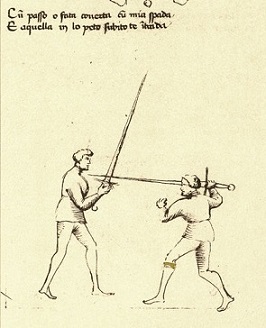 Cū passo o fata couerta cū mia spada·
E aquella in lo peto subito te īt̄ada·